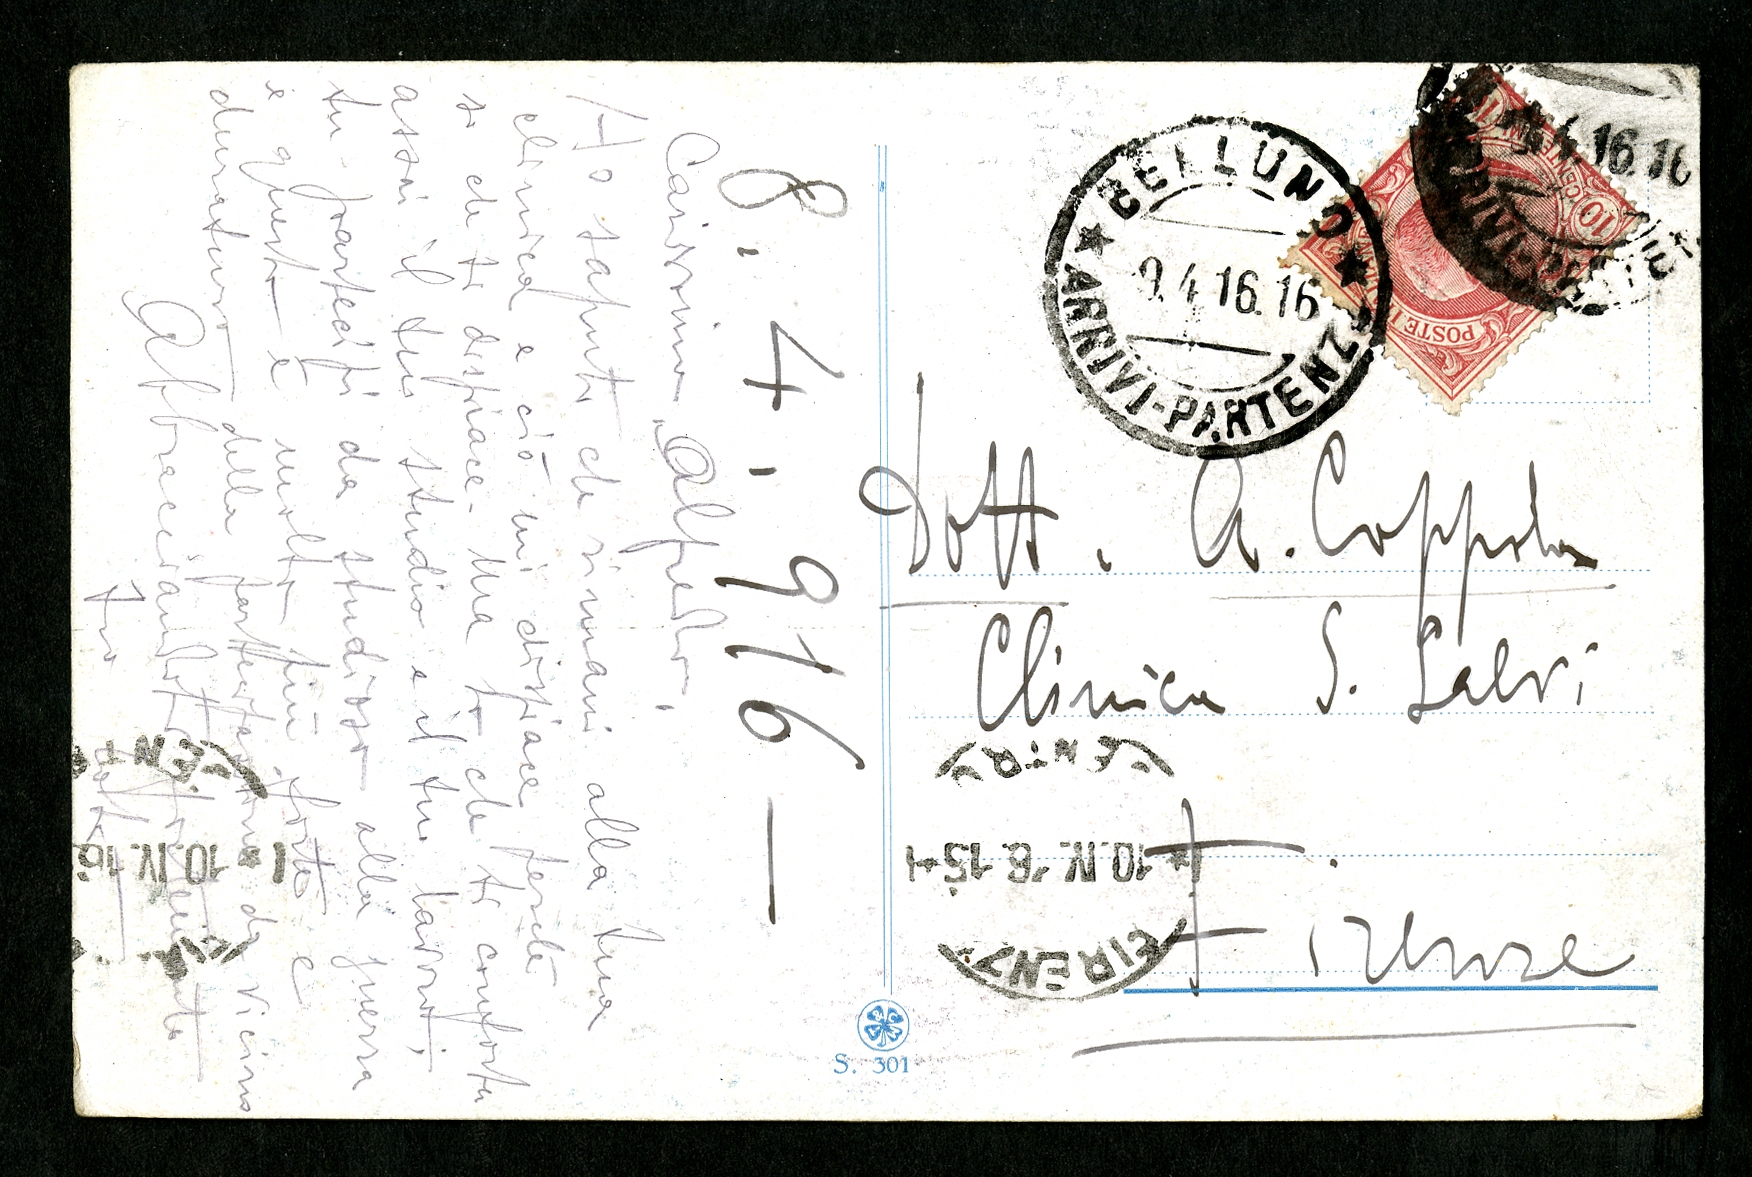 8.4.916 —
Carissimo Alfredo,
Ho saputo che rimani alla tua
clinica e ciò mi dispiace perché
so che ti dispiace. Ma so che ti conforta
assai il tuo studio e il tuo lavoro;
tu partecipi da studioso alla guerra
e questo è molto più forte e
duraturo della partecipazione da vicino
Abbracciandoti
Tuo
Dott. A. Coppola
Clinica S. Salvi
Firenze
BELLUNO
9.4.16.16
ARRIVI-PARTENZE
4.16.16
POSTE I
10
CEN
10
FIRENZE
10.IV.16.15
CENTRO
10.IV.16
S. 301